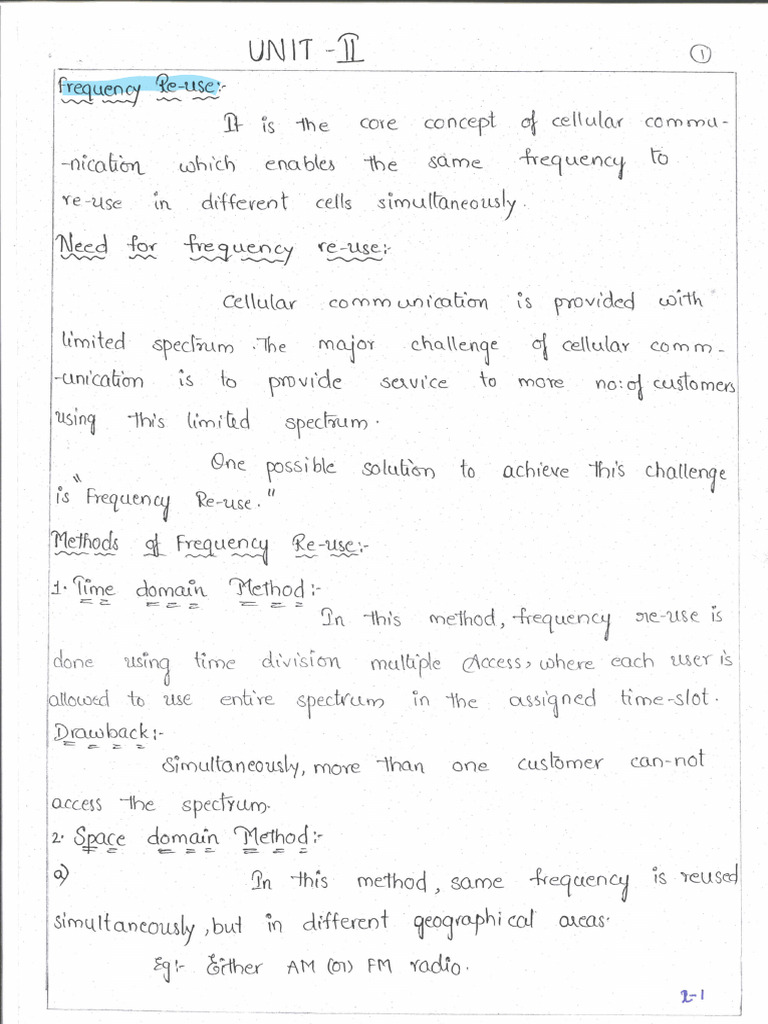 UNIT - II
1
Frequency Re-use:-
It is the core concept of cellular commu-
-nication which enables the same frequency to
re-use in different cells simultaneously.
Need for frequency re-use:-
Cellular communication is provided with
limited spectrum. The major challenge of cellular comm-
-unication is to provide service to more no: of customers
using this limited spectrum.
One possible solution to achieve this challenge
is "Frequency Re-use."
Methods of Frequency Re-use:-
1. Time domain Method:-
In this method, frequency re-use is
done using time division multiple Access, where each user is
allowed to use entire spectrum in the assigned time-slot.
Drawback:-
Simultaneously, more than one customer can-not
access the spectrum.
2. Space domain Method:-
a) In this method, same frequency is reused
simultaneously, but in different geographical areas.
Eg:- Either AM (or) FM radio.
2-1